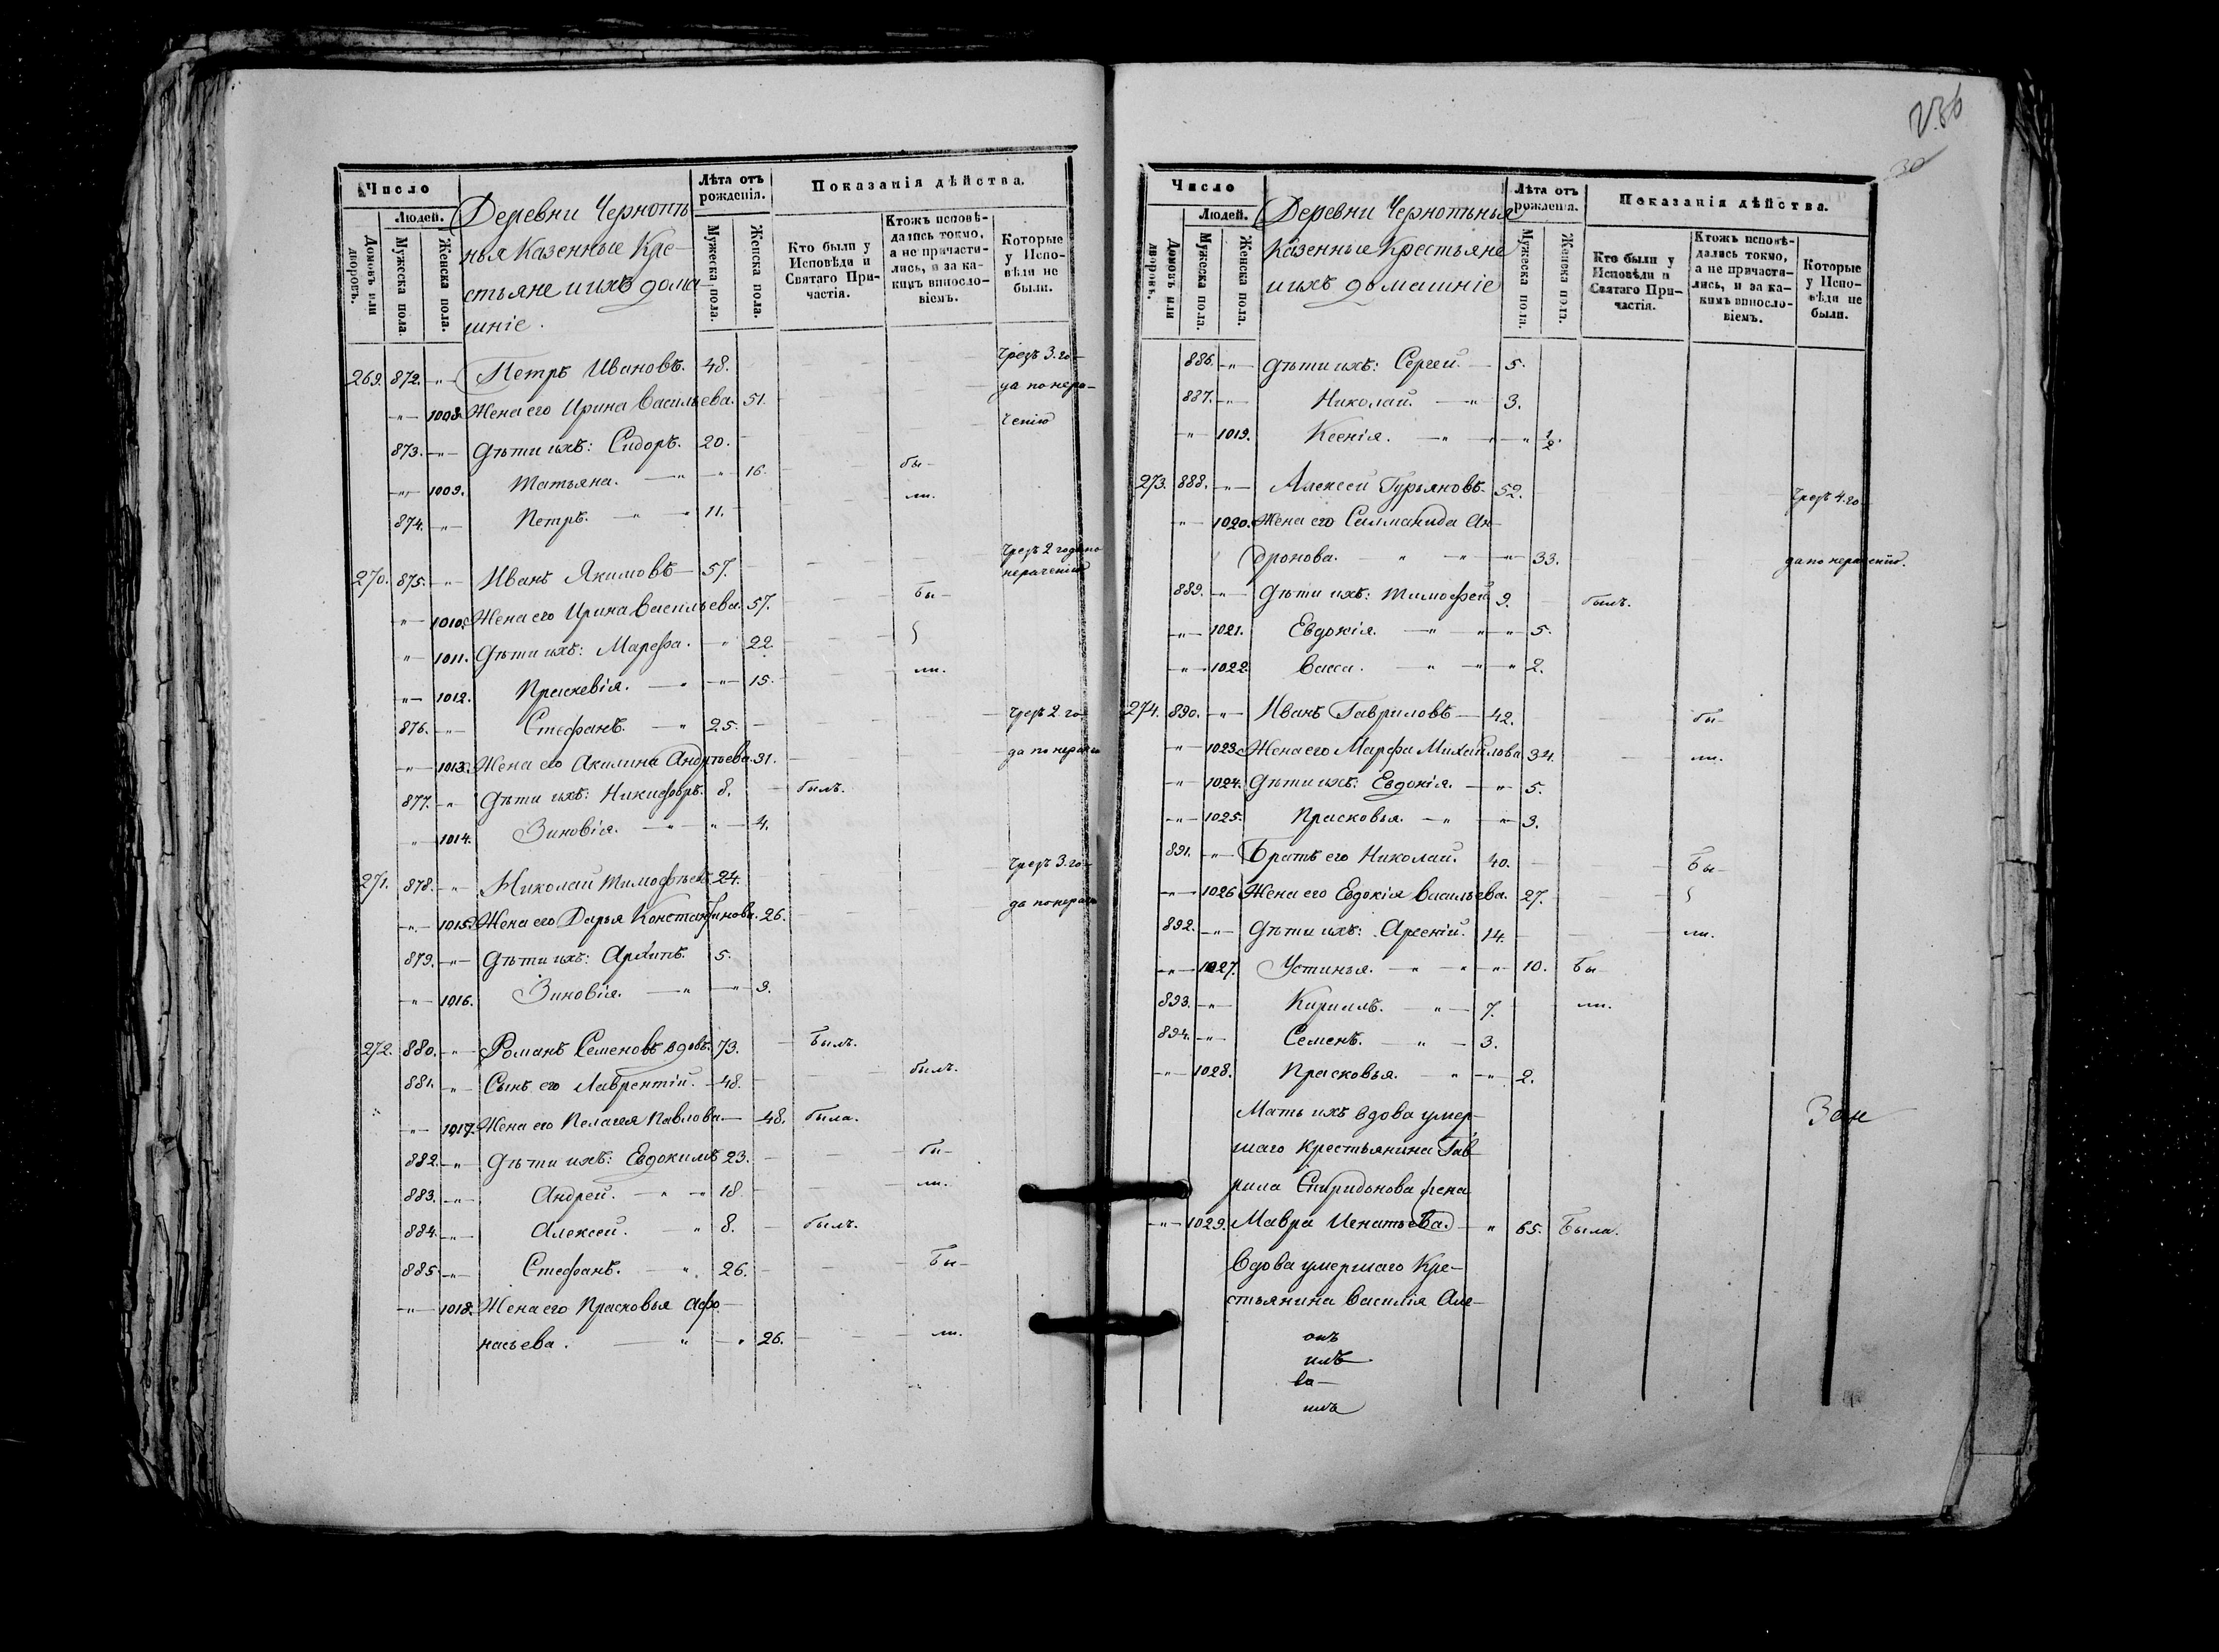 Число
Домовъ или дворовъ.
Людей.
Мужеска пола.
Женска пола.
Деревни Чернотѣ-
нья Казенные Кре-
стьяне и ихъ дома
шніе.
Лѣта отъ рожденія.
Мужеска пола.
Женска пола.
Показанія дѣйства.
Кто были у Исповѣди и Святаго При-частія.
Ктожъ исповѣ-дались токмо, а не причасти-лись, и за ка-кимъ винносло-віемъ.
Которые у Испо-вѣди не были.
269. 872. -"- Петръ Ивановъ. 48. Чрезъ 3. го-
да по нера-
-"- 1008. Жена его Ирина Васильева. 51.
ченію
873. -"- Дѣти ихъ: Сидоръ. 20.
бы-
-"- 1009. Татьяна. -"- -"- 16.
ли.
874. -"- Петръ. -"- -"- 11.
Чрезъ 2 года по
270. 875. -"- Иванъ Якимовъ 57. нераченію
-"- 1010. Жена его Ирина Васильева. 57. Бы-
-"- 1011. Дѣти ихъ: Марефа. -"- 22.
-"- 1012. Праскевія. -"- -"- 15. ли.
876. -"- Стефанъ. -"- 25. Чрезъ 2. го-
-"- 1013. Жена его Акилина Андрѣева. 31. да по нерач
877. -"- Дѣти ихъ: Никифоръ. 8. былъ.
-"- 1014. Зиновія. -"- -"- 4.
271. 878. -"- Николай Тимофѣевъ 24. Чрезъ 3. го-
-"- 1015. Жена его Дарья Константинова. 26. да по нерач
879. -"- Дѣти ихъ: Архипъ. 5.
-"- 1016. Зиновія. -"- -"- 3.
272. 880. -"- Романъ Семеновъ вдовъ. 73. Былъ.
881. -"- Сынъ его Лаврентій. 48. былъ.
-"- 1017. Жена его Пелагея Павлова 48. была.
882. -"- Дѣти ихъ: Евдокимъ 23. бы-
883. -"- Андрей. -"- -"- 18. ли.
884. -"- Алексей. -"- 8. былъ.
885. -"- Стефанъ. -"- 26. Бы-
-"- 1018. Жена его Прасковья Афо-
насьева. -"- -"- 26. ли.
30
Число
Домовъ или дворовъ.
Людей.
Мужеска пола.
Женска пола.
Деревни Чернотѣнья
Казенные Крестьяне
и ихъ домашніе
Лѣта отъ рожденія.
Мужеска пола.
Женска пола.
Показанія дѣйства.
Кто были у Исповѣди и Святаго При-частія.
Ктожъ исповѣ-дались токмо, а не причасти-лись, и за ка-кимъ винносло-віемъ.
Которые у Испо-вѣди не были.
886. -"- Дѣти ихъ: Сергей. 5.
887. -"- Николай. -"- 3.
-"- 1019. Ксенія. -"- -"- -"- 1/2.
273. 888. -"- Алексей Гурьяновъ. 52. Чрезъ 4. го-
-"- 1020. Жена его Салманида Ан-
дронова. -"- -"- -"- 33. да по нераченію.
889. -"- Дѣти ихъ: Тимофей 9. былъ.
-"- 1021. Евдокія. -"- -"- -"- 5.
-"- 1022. Васса. -"- -"- -"- 2.
274. 890. -"- Иванъ Гавриловъ 42. бы-
-"- 1023. Жена его Марефа Михайлова 34. ли.
-"- 1024. Дѣти ихъ: Евдокія. -"- 5.
-"- 1025. Прасковья. -"- -"- 3.
891. -"- Братъ его Николай. 40. Бы-
-"- 1026 Жена его Евдокія Васильева. 27.
892. -"- Дѣти ихъ: Арсеній. 14. ли.
-"- 1027. Устинья. -"- -"- -"- 10. Бы-
893. -"- Кириллъ. -"- 7. ли.
894. -"- Семенъ. -"- 3.
-"- 1028. Прасковья. -"- -"- 2.
Мать ихъ вдова умер-
шаго крестьянина Гав-
рила Спиридонова жена
-"- 1029. Мавра Игнатьева. -"- 65. Была.
Вдова умершаго Кре-
стьянина Василія Але-